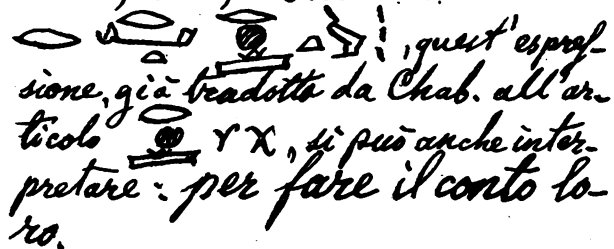 , quest'espres-
sione, già tradotta da Chab. all'ar-
ticolo , si può anche inter-
pretare: per fare il conto lo-
ro.